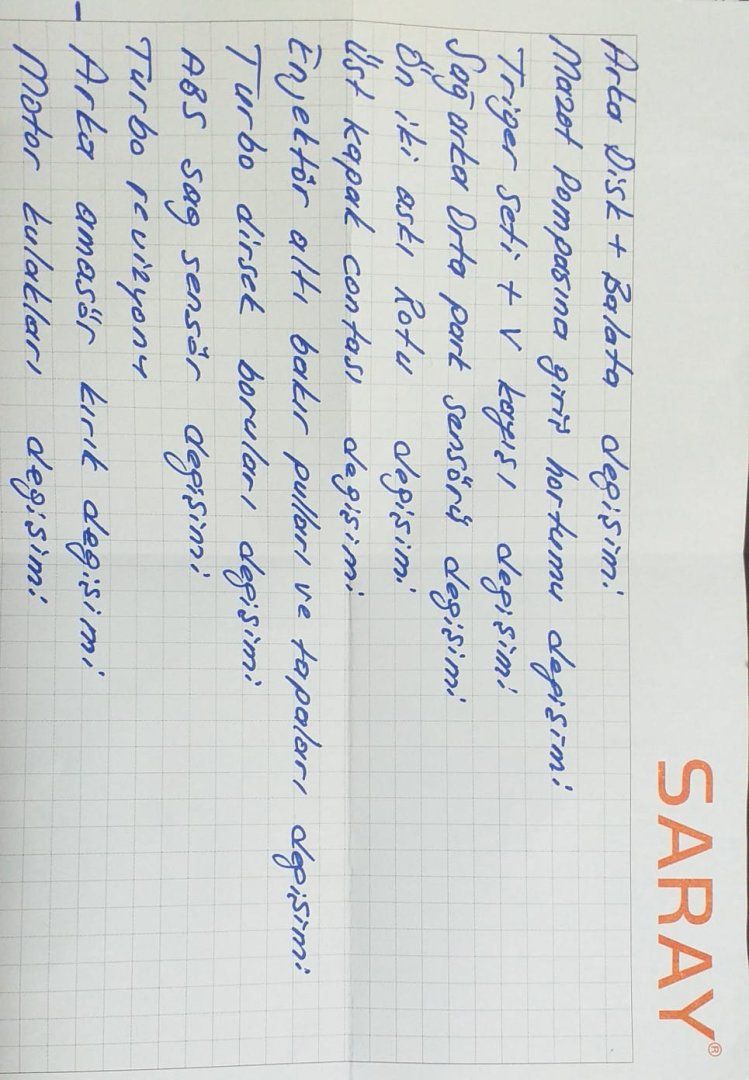 SARAY®
Arka Disk + Balata değişimi
Mazot pompasına giriş hortumu değişimi
Triger seti + V kayışı değişimi
Sağ arka Orta park sensörü değişimi
Ön iki askı Rotu değişimi
Üst kapak contası değişimi
Enjektör altı bakır pulları ve tapaları değişimi
Turbo dirsek boruları değişimi
ABS sağ sensör değişimi
Turbo revizyonu
- Arka amasör kırık değişimi
Motor kulakları değişimi